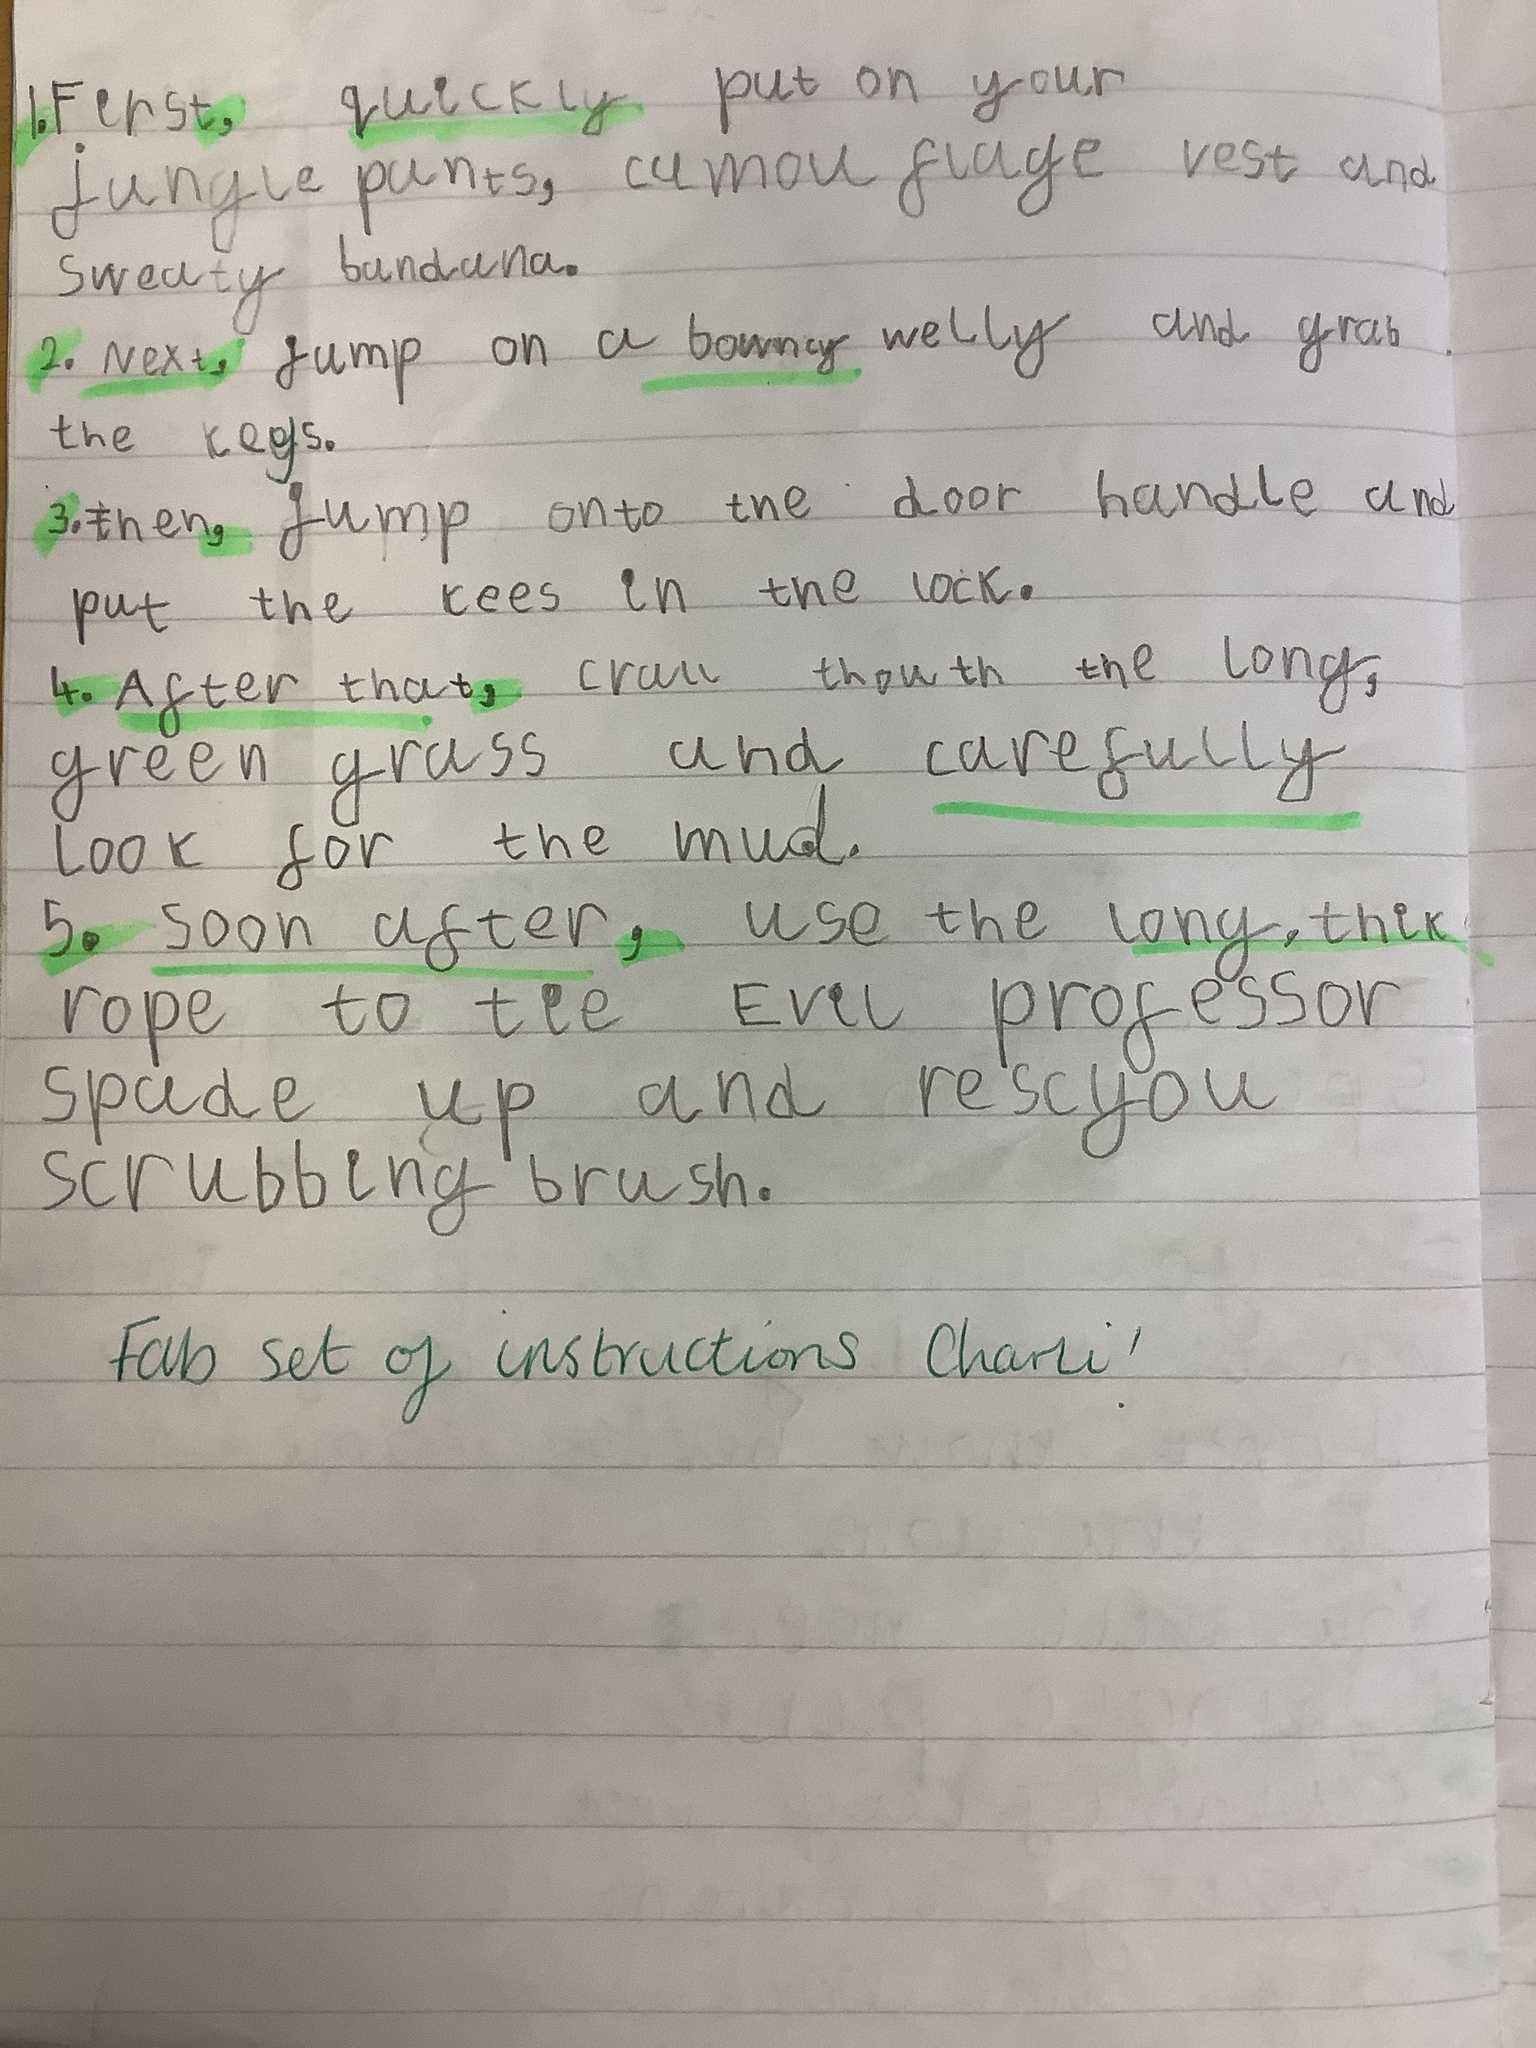 1. Ferst, quickly put on your
jungle pants, camouflage vest and
sweaty bandana.
2. Next, jump on a bouncy welly and grab
the keys.
3. then, jump onto the door handle and
put the kees in the lock.
4. After that, crall thouth the long,
green grass and carefully
look for the mud.
5. Soon after, use the long, thik
rope to tie Evil professor
spade up and rescyou
scrubbing brush.
Fab set of instructions Charli!